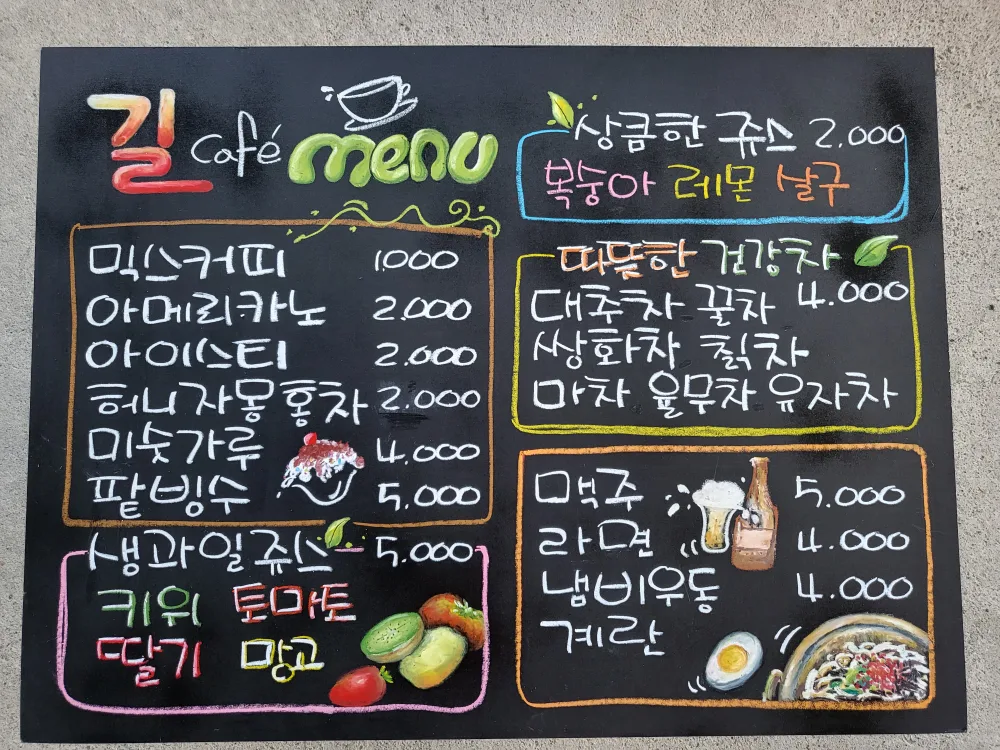 길 café menu
믹스커피 1.000
아메리카노 2.000
아이스티 2.000
허니자몽홍차 2.000
미숫가루 4.000
팥빙수 5,000
생과일쥬스 5.000
키위 토마토
딸기 망고
상큼한 쥬스 2.000
복숭아 레몬 살구
따뜻한 건강차
4.000
대추차 꿀차
쌍화차 칡차
마차 율무차 유자차
맥주 5.000
라면 4.000
냄비우동 4.000
계란